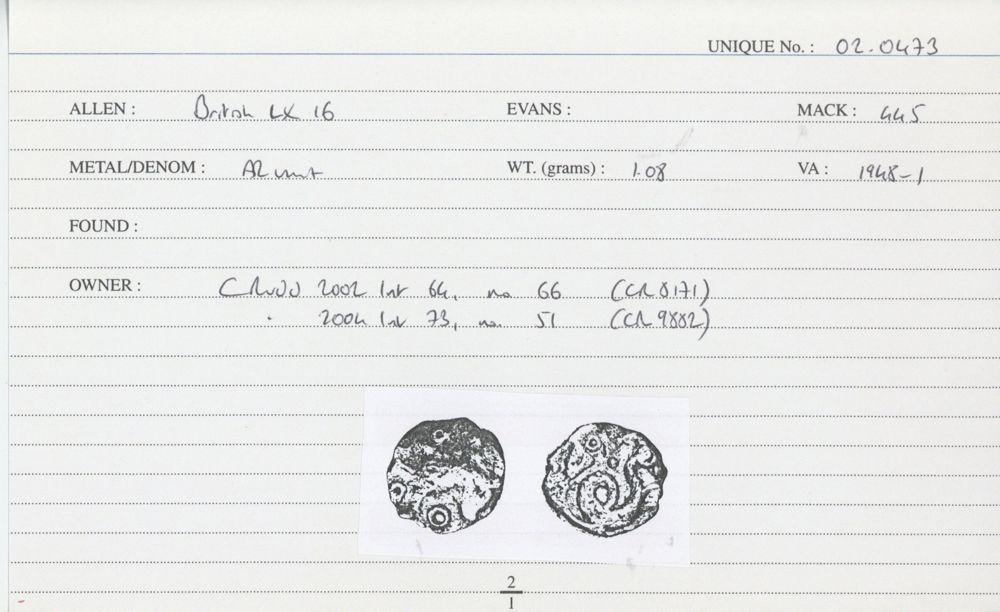 UNIQUE No. : 02.0473
ALLEN : British LX 16 EVANS : MACK : 445
METAL/DENOM : AR unit WT. (grams) : 1.08 VA : 1948-1
FOUND :
OWNER : CRUDD 2002 list 64, no 66 (CR 8171)
2004 list 73, no. 51 (CR 9882)
2
1